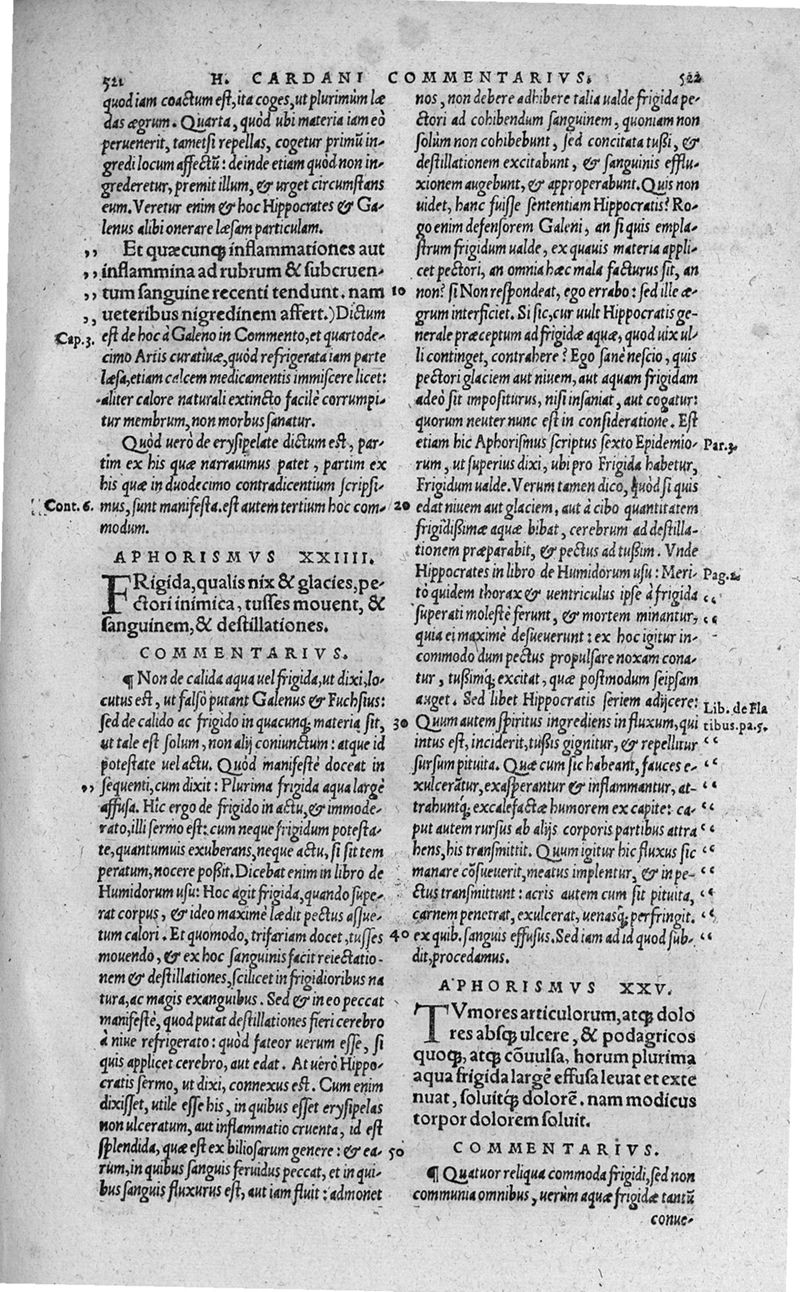 521 H. CARDANI COMMENTARIVS. 522
quod iam coactum est, ita coges, ut plurimùm læ
das ægrum. Quarta, quòd ubi materia iam eò
peruenerit, tametsi repellas, cogetur primũ in-
gredi locum affectũ: deinde etiam quòd non in-
grederetur, premit illum, & urget circumstans
eum. Veretur enim & hoc Hippocrates & Ga-
lenus alibi onerare læsam particulam.
,, Et quæcunq; inflammationes aut
,, inflammina ad rubrum & subcruen-
,, tum sanguine recenti tendunt. nam
,, ueteribus nigredinem affert.) Dictum
Cap. 3. est de hoc à Galeno in Commento, et quartode-
cimo Artis curatiuæ, quòd refrigerata iam parte
læsa, etiam calcem medicamentis immiscere licet:
aliter calore naturali extincto facilè corrumpi-
tur membrum, non morbus sanatur.
Quòd uerò de erysipelate dictum est, par-
tim ex his quæ narrauimus patet, partim ex
his quæ in duodecimo contradicentium scripsi-
Cont. 6. mus, sunt manifesta. est autem tertium hoc com-
modum.
APHORISMVS XXIIII.
FRigida, qualis nix & glacies, pe-
ctori inimica, tusses mouent, &
sanguinem, & destillationes.
COMMENTARIVS.
¶ Non de calida aqua uel frigida, ut dixi, lo-
cutus est, ut falsò putant Galenus & Fuchsius:
sed de calido ac frigido in quacunq; materia sit,
ut tale est solum, non alij coniunctum: atque id
potestate uel actu. Quòd manifestè doceat in
,, sequenti, cum dixit: Plurima frigida aqua largè
affusa. Hic ergo de frigido in actu, & immode-
rato, illi sermo est: cum neque frigidum potesta-
te, quantumuis exuberans, neque actu, si sit tem
peratum, nocere possit. Dicebat enim in libro de
Humidorum usu: Hoc agit frigida, quando supe-
rat corpus, & ideo maximè lædit pectus assue-
tum calori. Et quomodo, trifariam docet, tusses
mouendo, & ex hoc sanguinis facit reiectatio-
nem & destillationes, scilicet in frigidioribus na
tura, ac magis exanguibus. Sed & in eo peccat
manifestè, quod putat destillationes fieri cerebro
à niue refrigerato: quòd fateor uerum esse, si
quis applicet cerebro, aut edat. At uerò Hippo-
cratis sermo, ut dixi, connexus est. Cum enim
dixisset, utile esse his, in quibus esset erysipelas
non ulceratum, aut inflammatio cruenta, id est
splendida, quæ est ex biliosarum genere: & ea-
rum, in quibus sanguis feruidus peccat, et in qui-
bus sanguis fluxurus est, aut iam fluit: admonet
nos, non debere adhibere talia ualde frigida pe-
ctori ad cohibendum sanguinem, quoniam non
solùm non cohibebunt, sed concitata tussi, &
destillationem excitabunt, & sanguinis efflu-
xionem augebunt, & approperabunt. Quis non
uidet, hanc fuisse sententiam Hippocratis? Ro-
go enim defensorem Galeni, an si quis empla-
strum frigidum ualde, ex quauis materia appli-
cet pectori, an omnia hæc mala facturus sit, an
10 non? si Non respondeat, ego errabo: sed ille æ-
grum interficiet. Si sic, cur uult Hippocratis ge-
nerale præceptum ad frigidæ aquæ, quod uix ul-
li continget, contrahere? Ego sanè nescio, quis
pectori glaciem aut niuem, aut aquam frigidam
adeò sit impositurus, nisi insaniat, aut cogatur:
quorum neuter nunc est in consideratione. Est
etiam hic Aphorismus scriptus sexto Epidemio- Par. 3.
rum, ut superius dixi, ubi pro Frigida habetur,
Frigidum ualde. Verum tamen dico, quòd si quis
20 edat niuem aut glaciem, aut à cibo quantitatem
frigidissimæ aquæ bibat, cerebrum ad destilla-
tionem præparabit, & pectus ad tussim. Vnde
Hippocrates in libro de Humidorum usu: Meri- Pag. 2.
tò quidem thorax & uentriculus ipse à frigida
superati molestè ferunt, & mortem minantur, ‘‘
quia ei maximè desueuerunt: ex hoc igitur in- ‘‘
commodo dum pectus propulsare noxam cona-
tur, tussimq; excitat, quæ postmodum seipsam
auget. Sed libet Hippocratis seriem adijcere: Lib. de Fla
30 Quum autem spiritus ingrediens in fluxum, qui tibus. pa. 5.
intus est, inciderit, tussis gignitur, & repellitur ‘‘
sursum pituita. Quæ cum sic habeant, fauces e- ‘‘
xulcerãtur, exasperantur & inflammantur, at- ‘‘
trahuntq; excalefactæ humorem ex capite: ca- ‘‘
put autem rursus ab alijs corporis partibus attra ‘‘
hens, his transmittit. Quum igitur hic fluxus sic ‘‘
manare cõsueuerit, meatus implentur, & in pe- ‘‘
ctus transmittunt: acris autem cum sit pituita, ‘‘
carnem penetrat, exulcerat, uenasq; perfringit. ‘‘
40 ex quib. sanguis effusus. Sed iam ad id quod sub- ‘‘
dit, procedamus.
APHORISMVS XXV.
TVmores articulorum, atq; dolo
res absq; ulcere, & podagricos
quoq;, atq; cõuulsa, horum plurima
aqua frigida largè effusa leuat et exte
nuat, soluitq; dolorẽ. nam modicus
torpor dolorem soluit.
COMMENTARIVS.
50 ¶ Quatuor reliqua commoda frigidi, sed non
communia omnibus, uerùm aquæ frigidæ tantũ
conue-